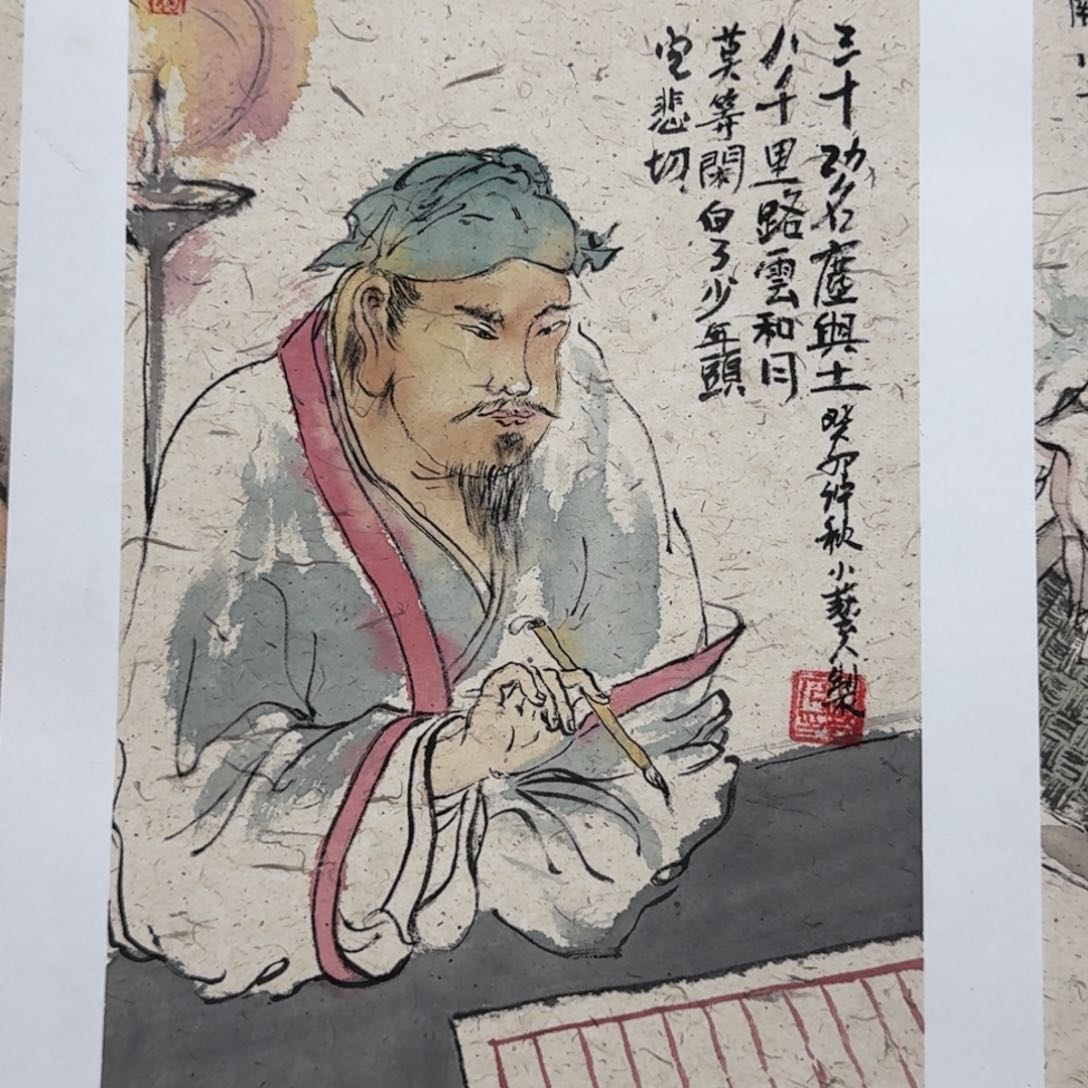 三十功名塵與土
八千里路雲和月
莫等閑白了少年頭
空悲切
癸卯仲秋小藝製